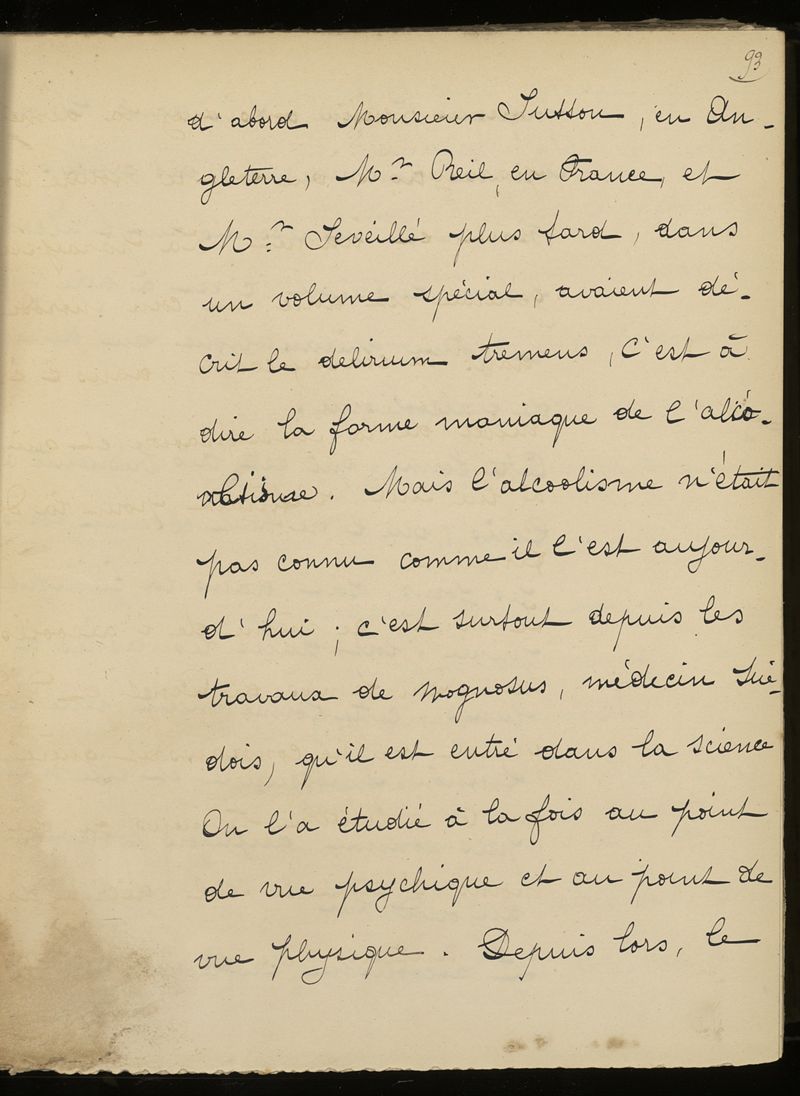 93
d'abord Monsieur Sutton, en An-
gleterre, Mr Reil, en France, et
Mr Seveillé plus tard, dans
un volume spécial, avaient dé-
crit le delirium tremens, c'est à
dire la forme maniaque de l'alco-
. Mais l'alcoolisme n'était
pas connu comme il l'est aujour-
d'hui ; c'est surtout depuis les
travaux de Mognosus, médecin Sué-
dois, qu'il est entré dans la science
On l'a étudié à la fois au point
de vue psychique et au point de
vue physique. Depuis lors, le